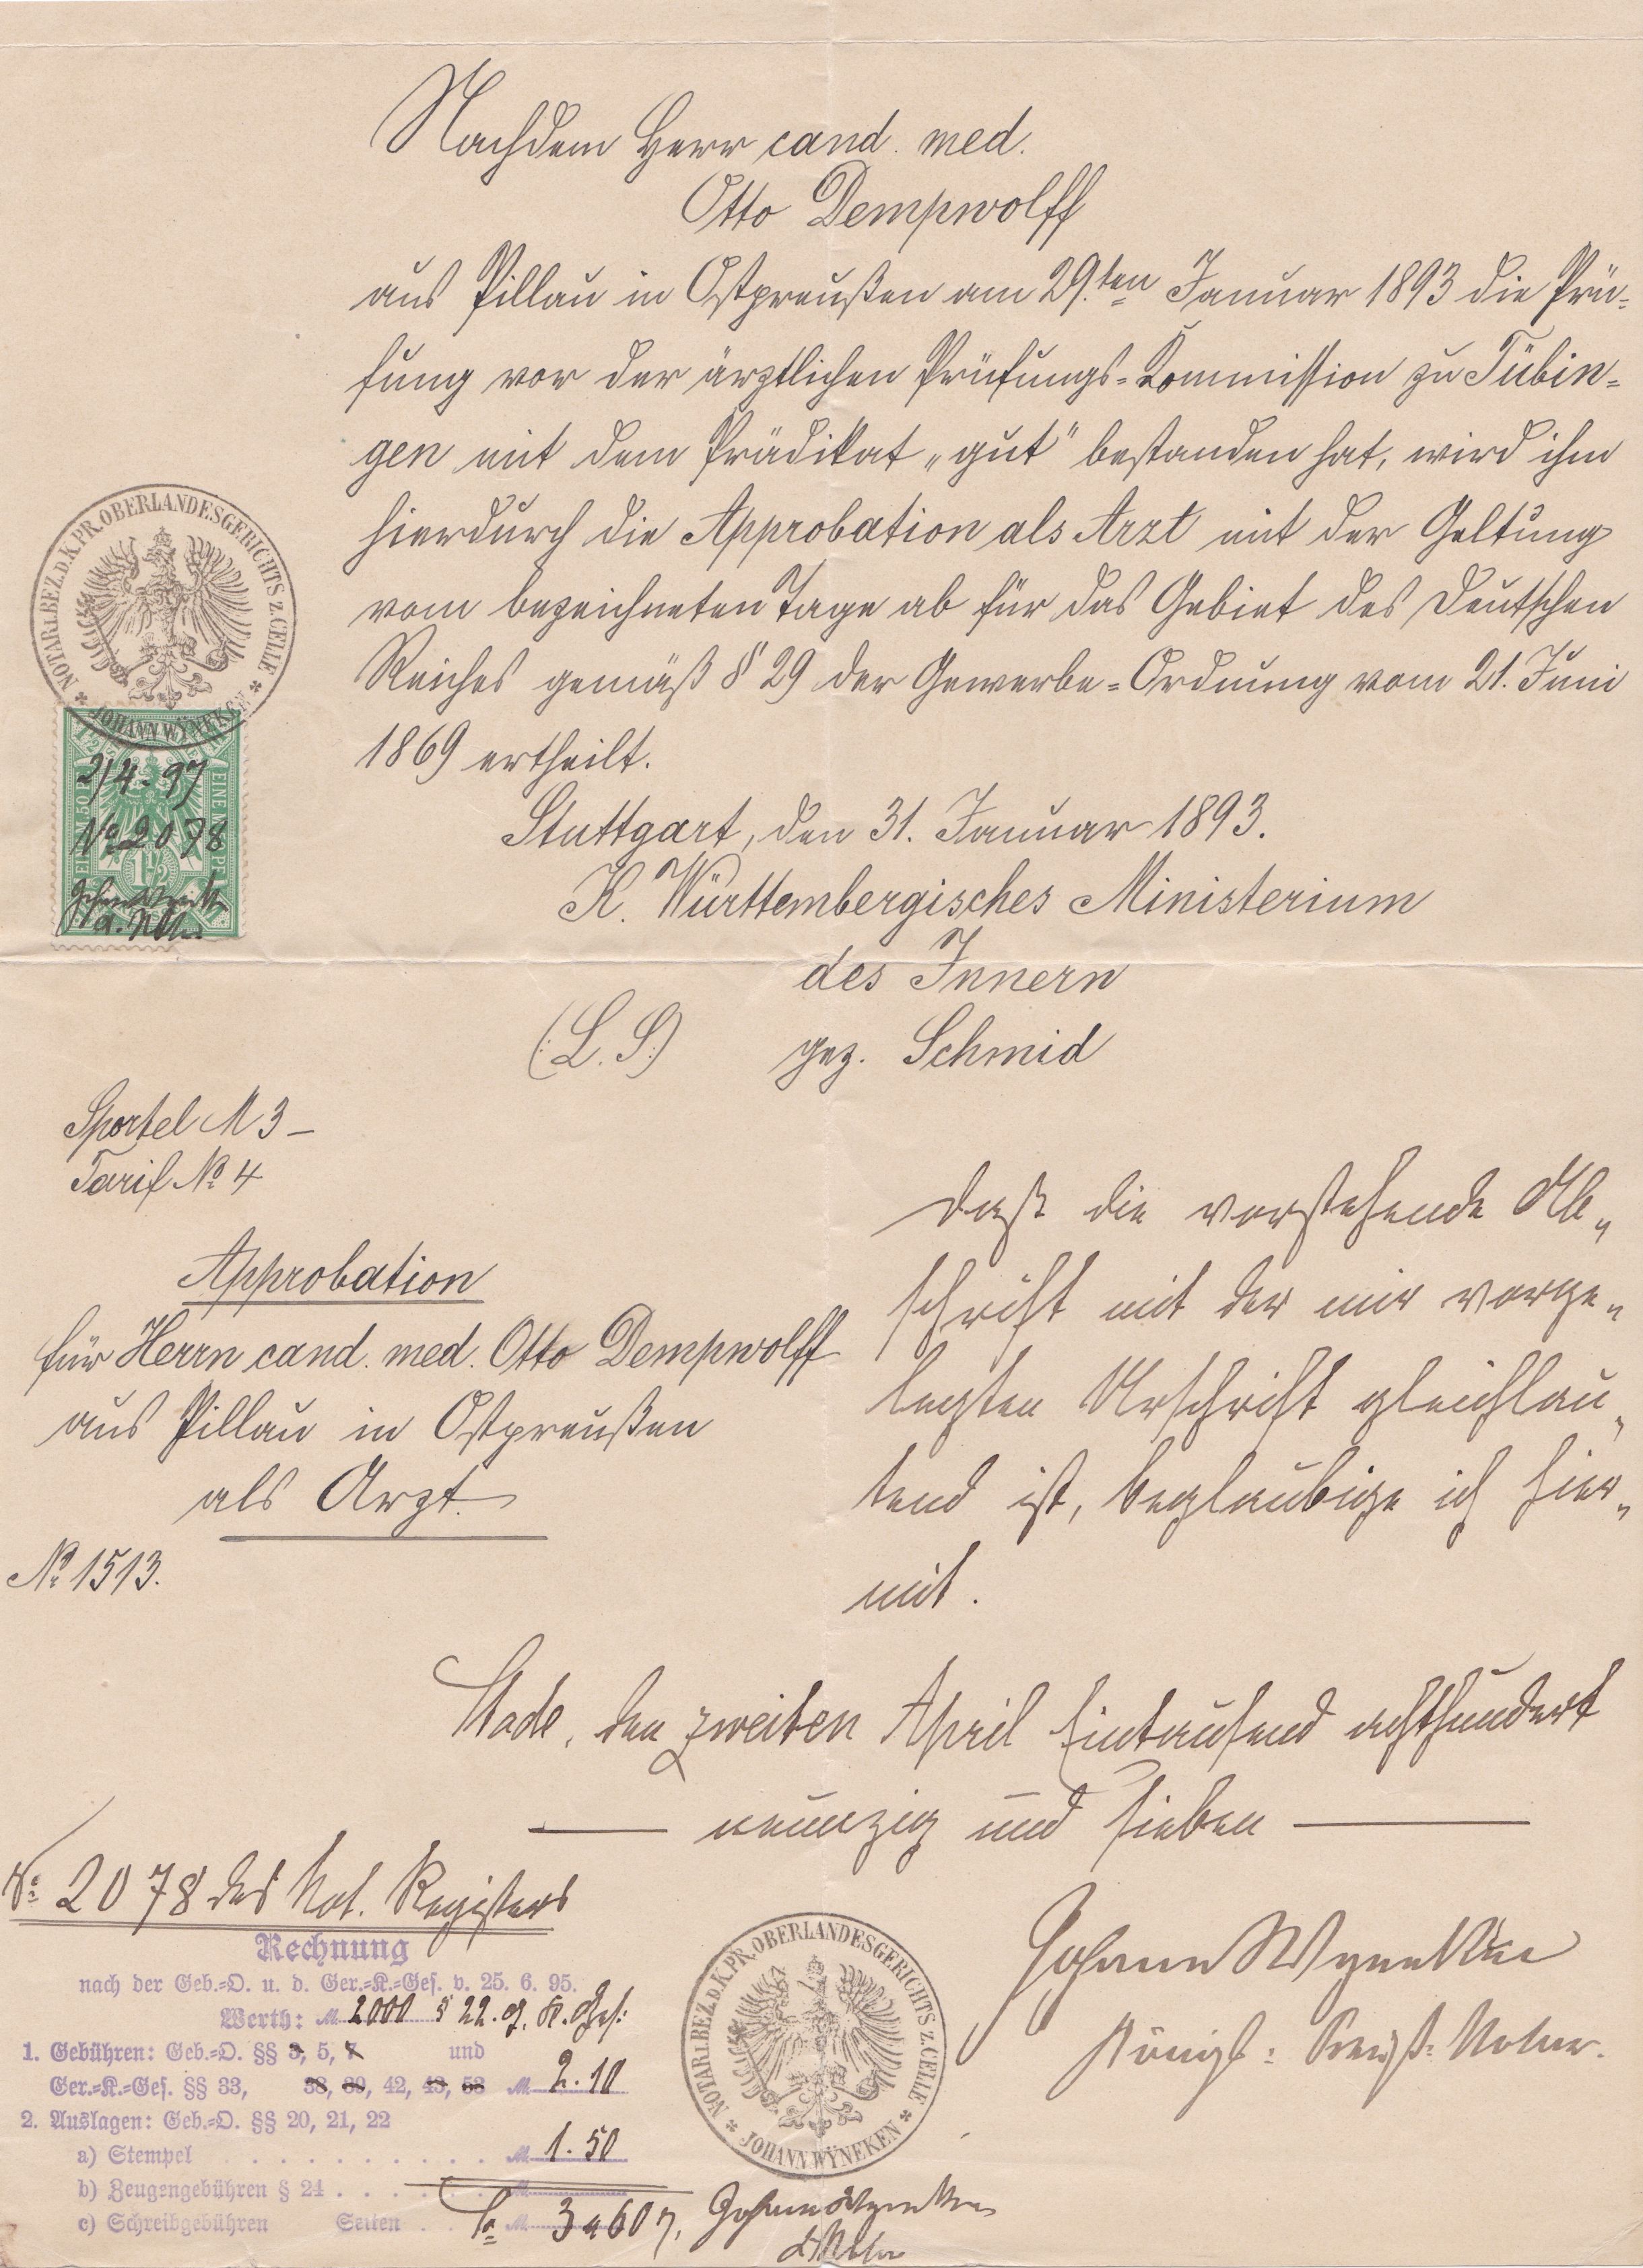 Nachdem Herr cand. med.
Otto Dempwolff
aus Pillau in Ostpreußen am 29.ten Januar 1893 die Prü-
fung vor der ärztlichen Prüfungs-Kommission zu Tübin-
gen mit dem Prädikat „gut" bestanden hat, wird ihm
hierdurch die Approbation als Arzt mit der Geltung
vom bezeichneten Tage ab für das Gebiet des Deutschen
Reiches gemäß § 29 der Gewerbe-Ordnung vom 21. Juni
1869 ertheilt.
Stuttgart, den 31. Januar 1893.
K. Württembergisches Ministerium
des Innern
(: L. S. :) gez. Schmid
NOTAR I. BEZ. D. K. PR. OBERLANDESGERICHTS Z. CELLE
JOHANN WŸNEKEN
2/4. 97
No 2078
1½
Sportel M 3 –
Tarif No 4
Approbation
für Herrn cand. med. Otto Dempwolff
aus Pillau in Ostpreußen
als Arzt.
No 1513.
Daß die vorstehende Ab-
schrift mit der mir vorge-
legten Urschrift gleichlau-
tend ist, beglaubige ich hier-
mit.
Stade, den zweiten April Eintausend achthundert
neunzig und sieben
No. 2078 des Not. Registers
Johann Wyneken
Königl. Preuß. Notar.
Rechnung
nach der Geb.-O. u. d. Ger.-K.-Ges. v. 25. 6. 95.
Werth: M. 2000 § 22. G. K. Ges:
1. Gebühren: Geb.-O. §§ 3, 5, 7 und
Ger.-K.-Ges. §§ 33, 38, 39, 42, 43, 53 M. 2.10
2. Auslagen: Geb.-O. §§ 20, 21, 22
a) Stempel M. 1.50
b) Zeugengebühren § 24 M.
c) Schreibgebühren Seiten Sa M. 3 M 60
NOTAR I. BEZ. D. K. PR. OBERLANDESGERICHTS Z. CELLE
JOHANN WŸNEKEN
Johann Wyneken
Notar